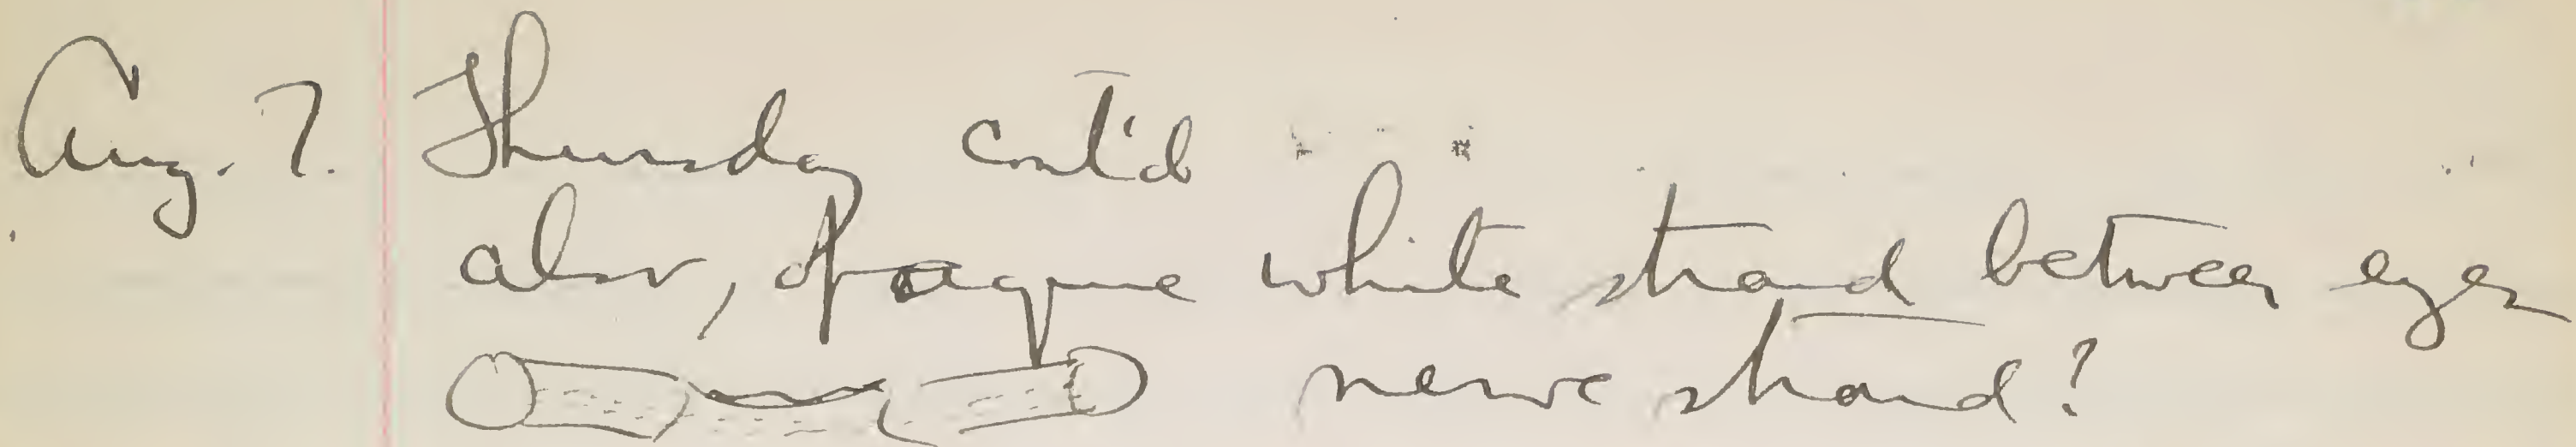 Aug. 7. Thursday cont'd
also, opaque white strand between eyes
nerve strand?